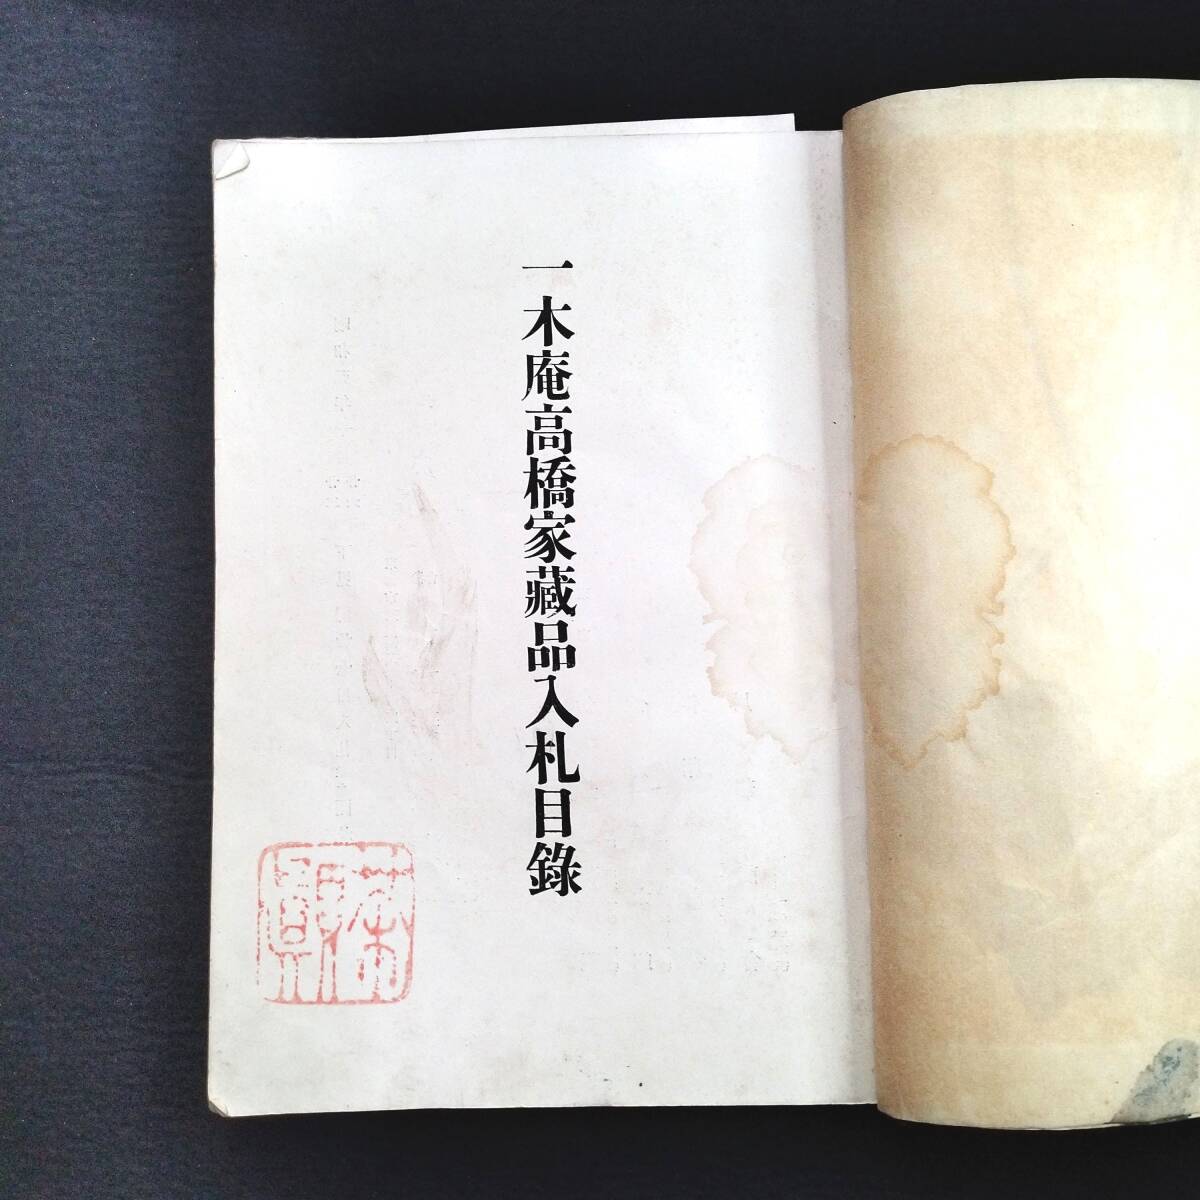 一木庵高橋家藏品入札目錄